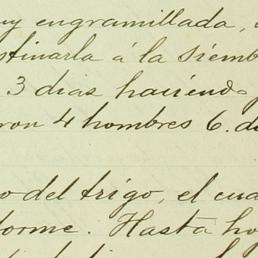 uy engramillada,
stinarla á la siemb
3 dias haciendo
ron 4 hombres 6. di
o del trigo, el cua
forme. Hasta ho